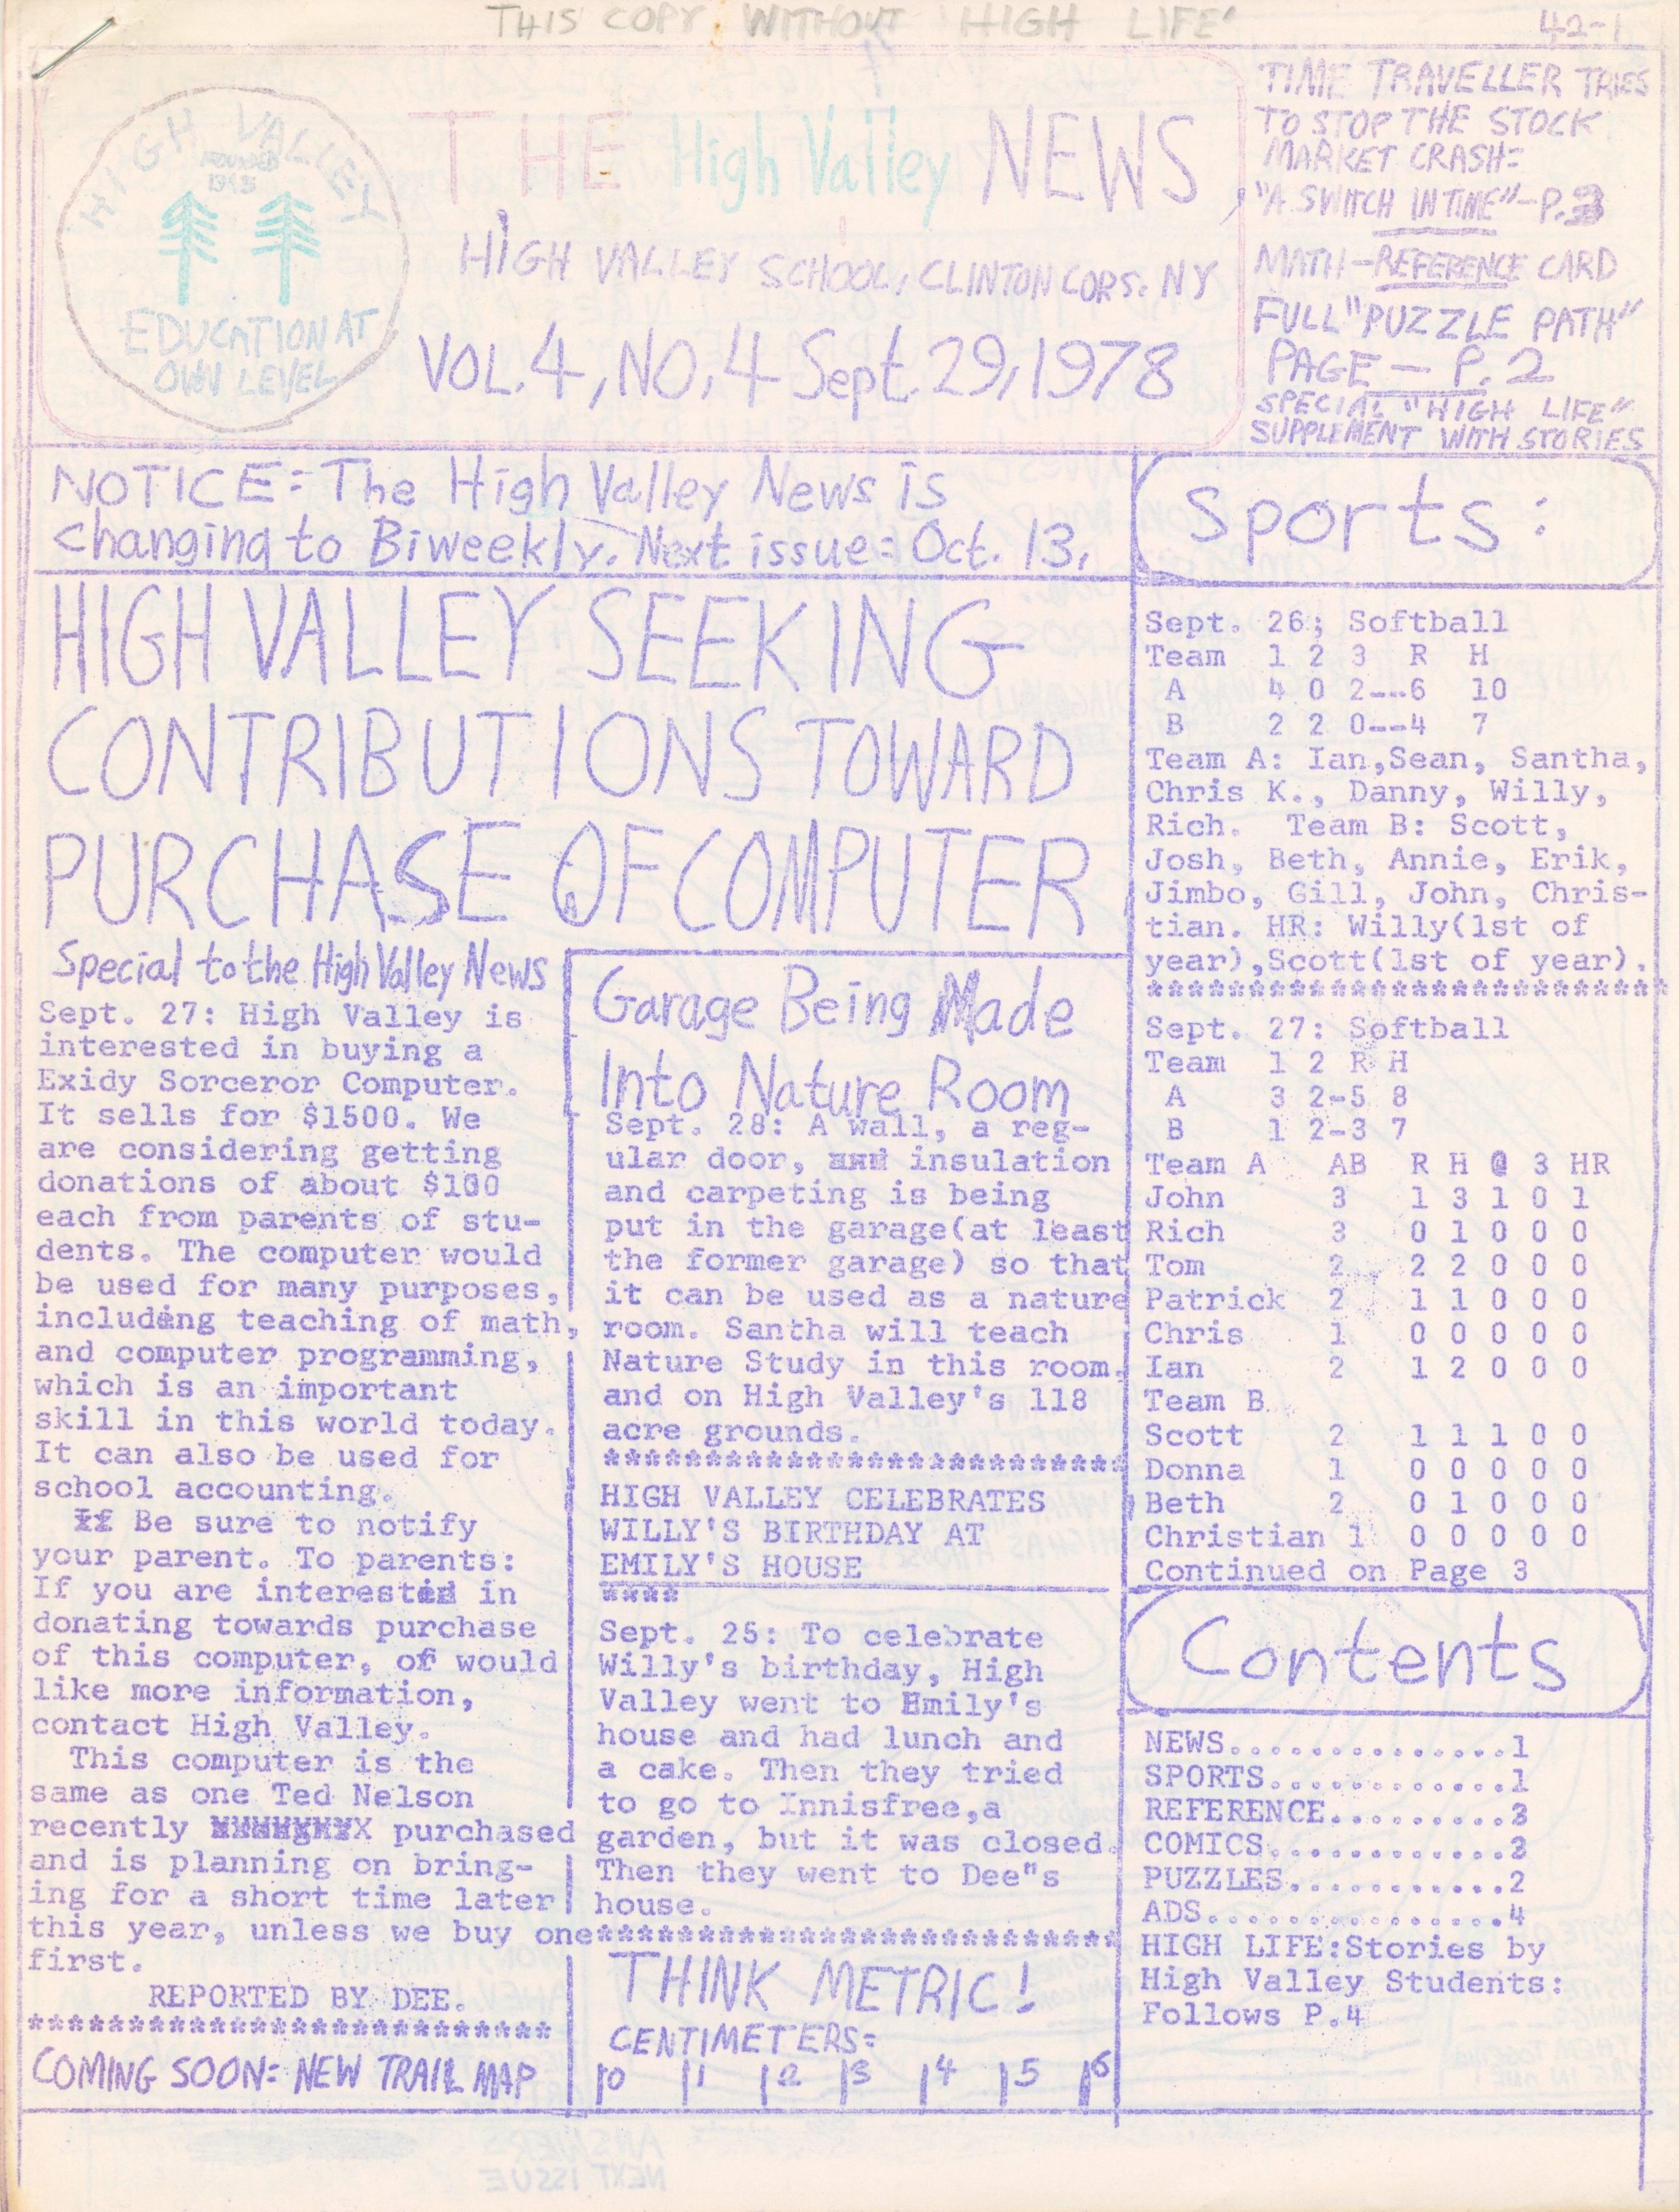 THIS COPY WITHOUT HIGH LIFE'
42-1
HIGH VALLEY
FOUNDED
1945
EDUCATION AT
OWN LEVEL
THE High Valley NEWS
HIGH VALLEY SCHOOL, CLINTON CORS. NY
VOL. 4, NO. 4 Sept. 29, 1978
TIME TRAVELLER TRIES
TO STOP THE STOCK
MARKET CRASH=
"A SWITCH IN TIME"-P.3
MATH-REFERENCE CARD
FULL "PUZZLE PATH"
PAGE - P. 2
SPECIAL "HIGH LIFE"
SUPPLEMENT WITH STORIES
NOTICE= The High Valley News is
changing to Biweekly. Next issue= Oct. 13.
HIGH VALLEY SEEKING
CONTRIBUTIONS TOWARD
PURCHASE OF COMPUTER
Special to the High Valley News
Sept. 27: High Valley is
interested in buying a
Exidy Sorceror Computer.
It sells for $1500. We
are considering getting
donations of about $100
each from parents of stu-
dents. The computer would
be used for many purposes,
including teaching of math,
and computer programming,
which is an important
skill in this world today.
It can also be used for
school accounting.
Be sure to notify
your parent. To parents:
If you are interested in
donating towards purchase
of this computer, or would
like more information,
contact High Valley.
This computer is the
same as one Ted Nelson
recently purchased
and is planning on bring-
ing for a short time later
this year, unless we buy one
first.
REPORTED BY DEE.
**************************
COMING SOON= NEW TRAIL MAP
Garage Being Made
Into Nature Room
Sept. 28: A wall, a reg-
ular door, insulation
and carpeting is being
put in the garage(at least
the former garage) so that
it can be used as a nature
room. Santha will teach
Nature Study in this room.
and on High Valley's 118
acre grounds.
**************************
HIGH VALLEY CELEBRATES
WILLY'S BIRTHDAY AT
EMILY'S HOUSE
****
Sept. 25: To celebrate
Willy's birthday, High
Valley went to Emily's
house and had lunch and
a cake. Then they tried
to go to Innisfree,a
garden, but it was closed.
Then they went to Dee"s
house.
**************************
THINK METRIC!
CENTIMETERS=
0 1 2 3 4 5 6
Sports:
Sept. 26; Softball
Team 1 2 3 R H
A 4 0 2--6 10
B 2 2 0--4 7
Team A: Ian,Sean, Santha,
Chris K., Danny, Willy,
Rich. Team B: Scott,
Josh, Beth, Annie, Erik,
Jimbo, Gill, John, Chris-
tian. HR: Willy(1st of
year),Scott(1st of year).
**************************
Sept. 27: Softball
Team 1 2 R H
A 3 2-5 8
B 1 2-3 7
Team A AB R H @ 3 HR
John 3 1 3 1 0 1
Rich 3 0 1 0 0 0
Tom 2 2 2 0 0 0
Patrick 2 1 1 0 0 0
Chris 1 0 0 0 0 0
Ian 2 1 2 0 0 0
Team B
Scott 2 1 1 1 0 0
Donna 1 0 0 0 0 0
Beth 2 0 1 0 0 0
Christian 1 0 0 0 0 0
Continued on Page 3
Contents
NEWS..............1
SPORTS............1
REFERENCE.........3
COMICS............3
PUZZLES...........2
ADS...............4
HIGH LIFE:Stories by
High Valley Students:
Follows P.4